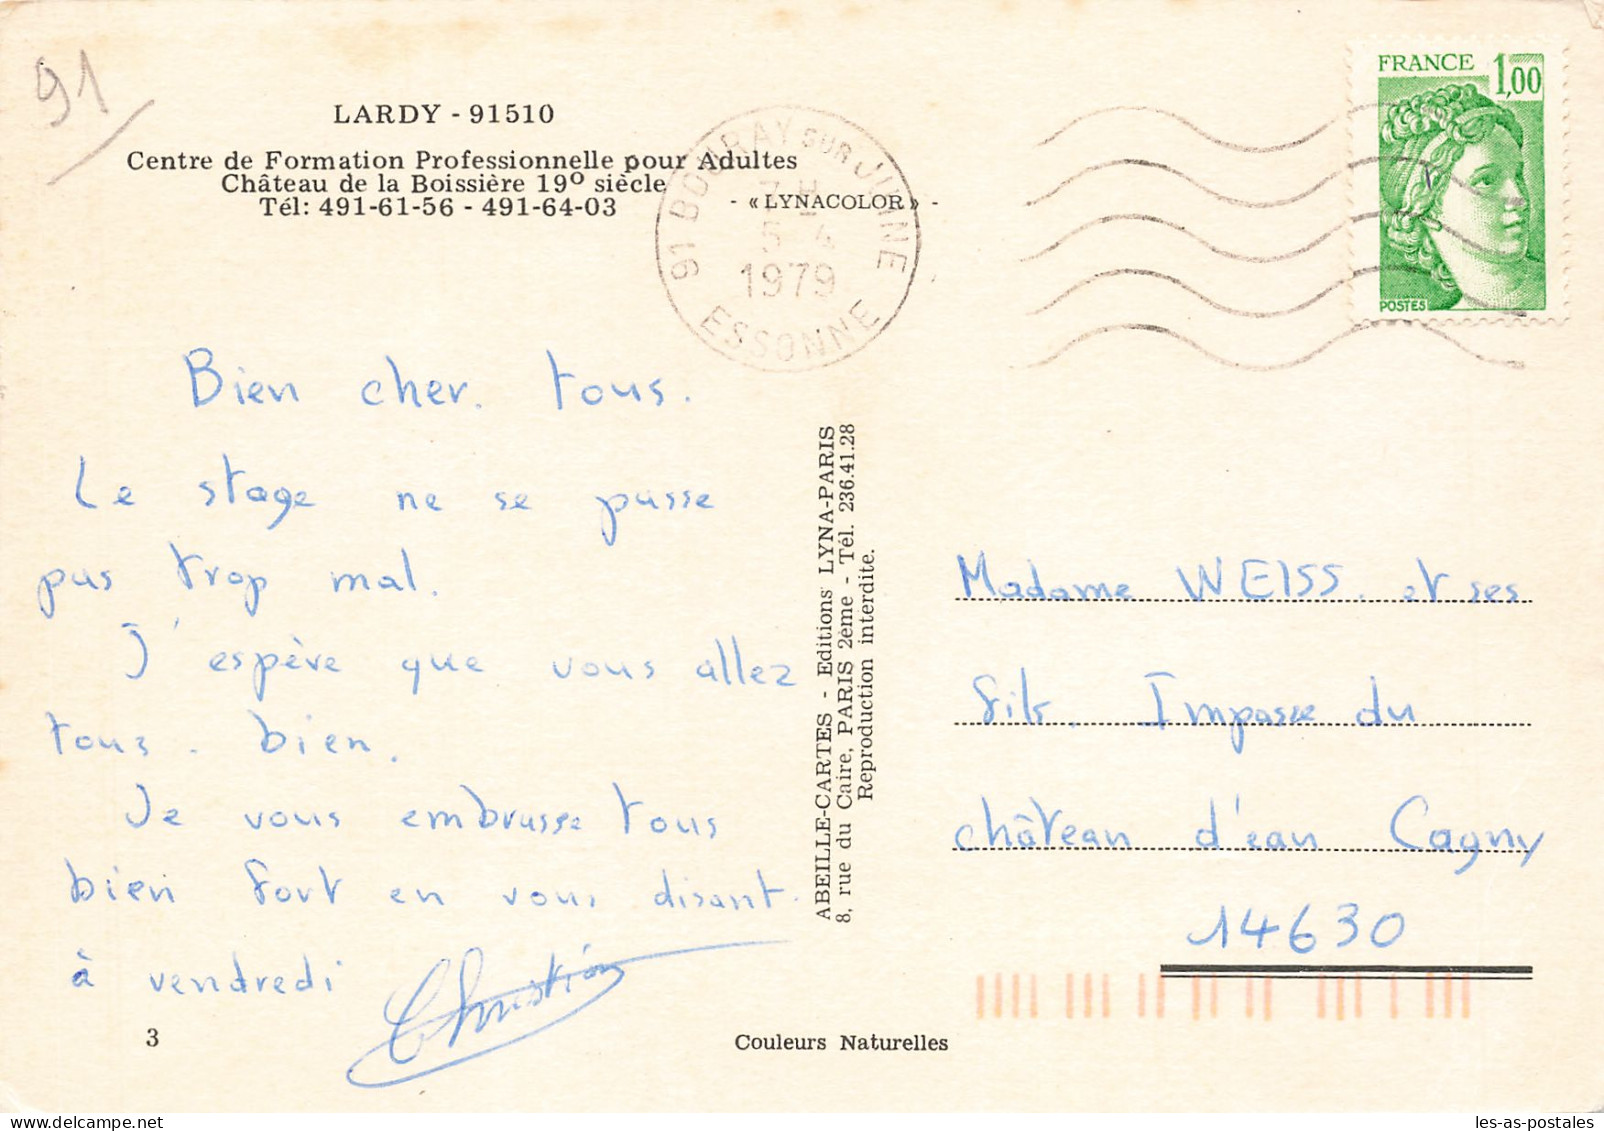 91
LARDY - 91510
Centre de Formation Professionnelle pour Adultes
Château de la Boissière 19º siècle
Tél: 491-61-56 - 491-64-03
- « LYNACOLOR » -
91 BOURAY SUR JUINE
7 H
5 - 4
1979
ESSONNE
FRANCE 1,00
POSTES
Bien cher. tous.
Le stage ne se passe
pas trop mal.
J'espère que vous allez
tous. bien.
Je vous embrasse tous
bien fort en vous disant.
à vendredi
Christian
3
ABEILLE-CARTES - Editions LYNA-PARIS
8, rue du Caire, PARIS 2ème - Tél. 236.41.28
Reproduction interdite.
Madame WEISS. et ses
fils. Impasse du
château d'eau Cagny
14630
Couleurs Naturelles
les-as-postales